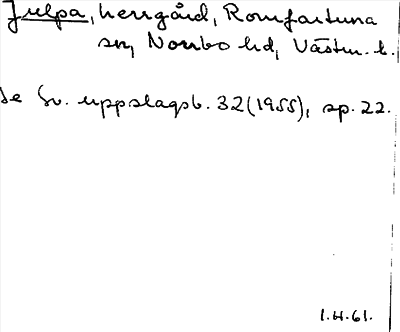 Julpa, herrgård, Romfartuna
sn, Norrbo hd, Västm. l.
Se Sv. uppslagsb. 32 (1955), sp. 22.
1.H.61.